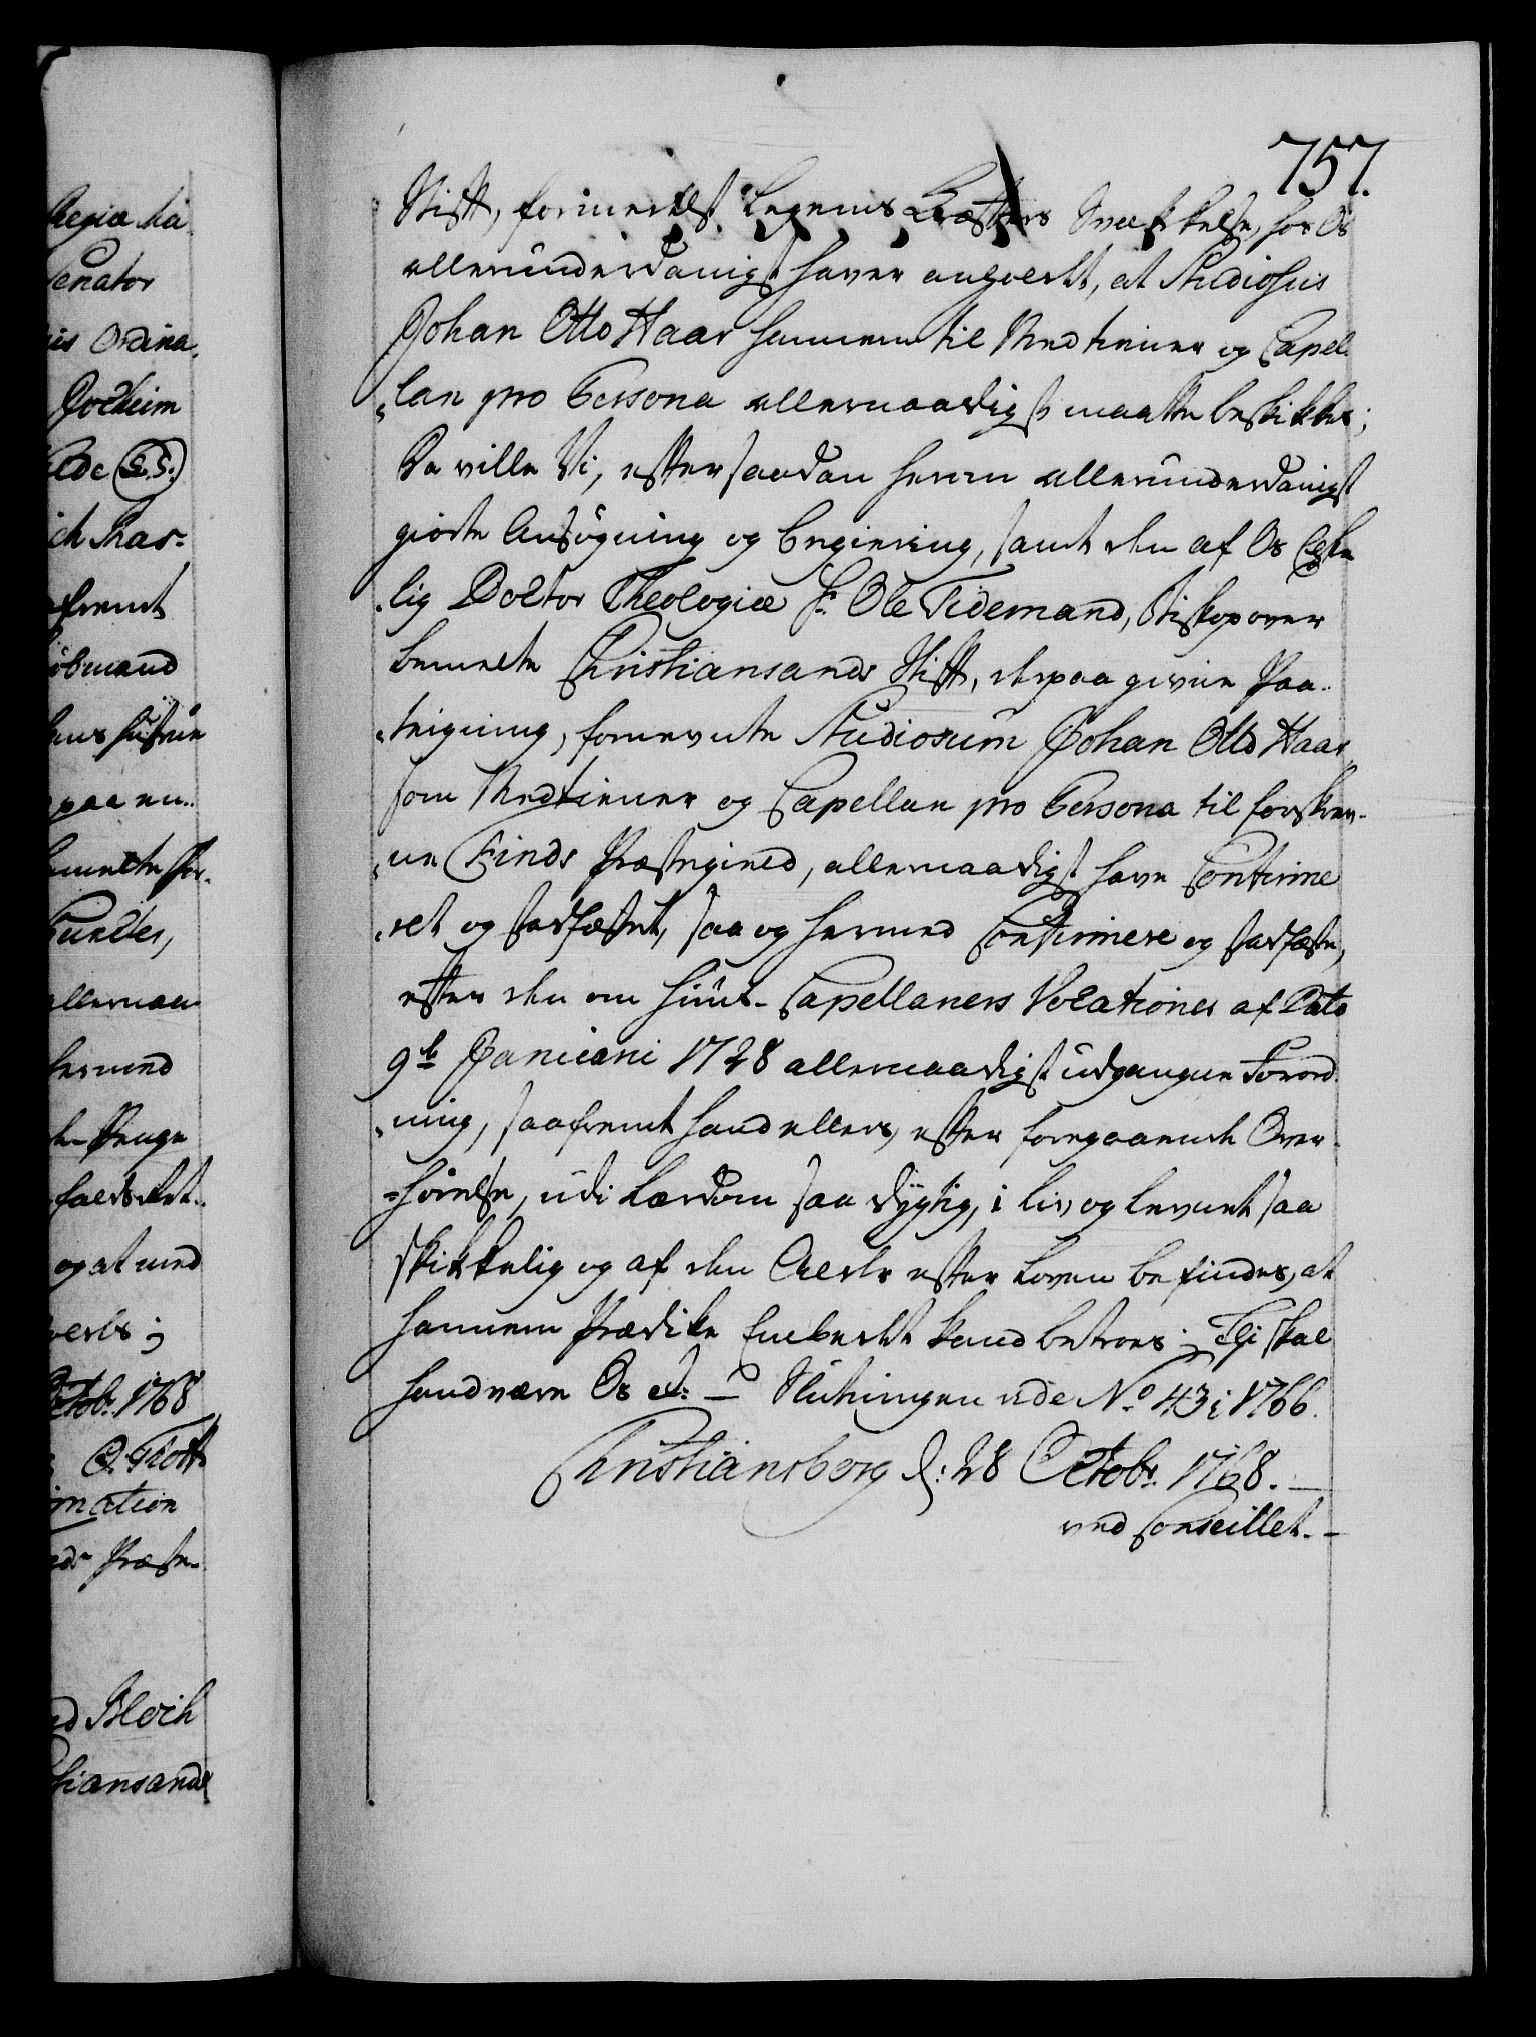 757.
Stift, formedelst Legems Kræfters Svækkelse, hos Os
allerunderdanigst haver anholdt, at Studiosus
Johan Otto Haar hannem til Medtiener og Capel-
lan pro Persona allernaadigst maatte beskikkes;
Da ville Vi, efter saadan herom allerunderdanigst
giorte Ansøgning og Begiering, samt den af Os Elske-
lig Doctor Theologiæ Hr Ole Tidemand, Biskop over
bemelte Christiansands Stift, derpaa givne Paa-
tegning, fornevnte Studiosum Johan Otto Haar
som Medtiener og Capellan pro Persona til forskrev-
ne Finds Præstegield, allernaadigst have Confirme-
ret og stadfæstet, saa og hermed Confirmere og stadfæste,
efter den om Capellaners Vocationer af Dato
9de Januarii 1728 allernaadigst udgangne Forord-
ning, saafremt hand ellers, efter foregaaende Over-
hørelse, udi Lærdom saa dygtig, i Liv og Levnet saa
skikkelig og af den Alder efter Loven befindes, at
hannem Prædike Embedet kand betroes; Thi skal
hand være Os et: — Slutningen vide No 43 i 1766.
Christiansborg d: 28 Octobr: 1768. —
ved Conseillet. —
Regiæ Ma
Senator
is Ordina.
S. S.
fremt
hans Hustrue
paa en
Kundes,
allernaa
hermed
og at med
Octobr. 1768
O. Thott
ination
nd Bloch
stiansands